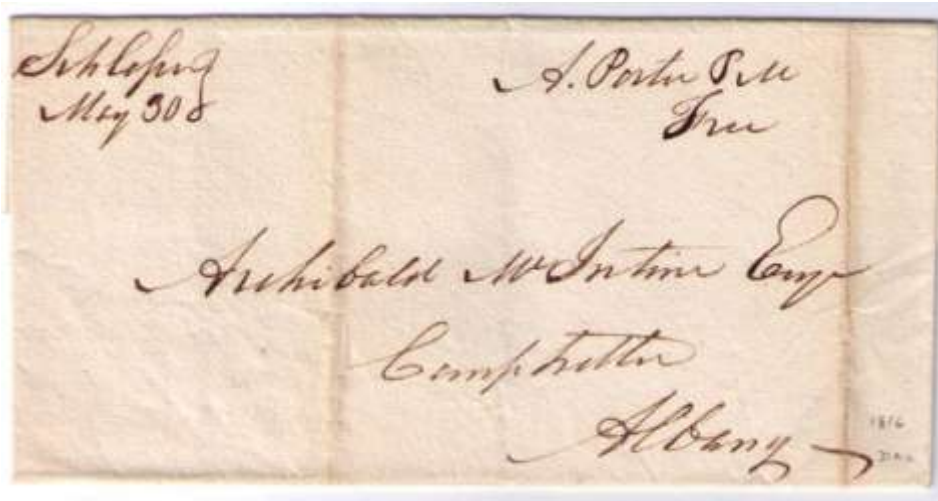 Schlosser
May 30
A. Porter P M
Free
Archibald McIntire Esqr
Comptroller
Albany
1816